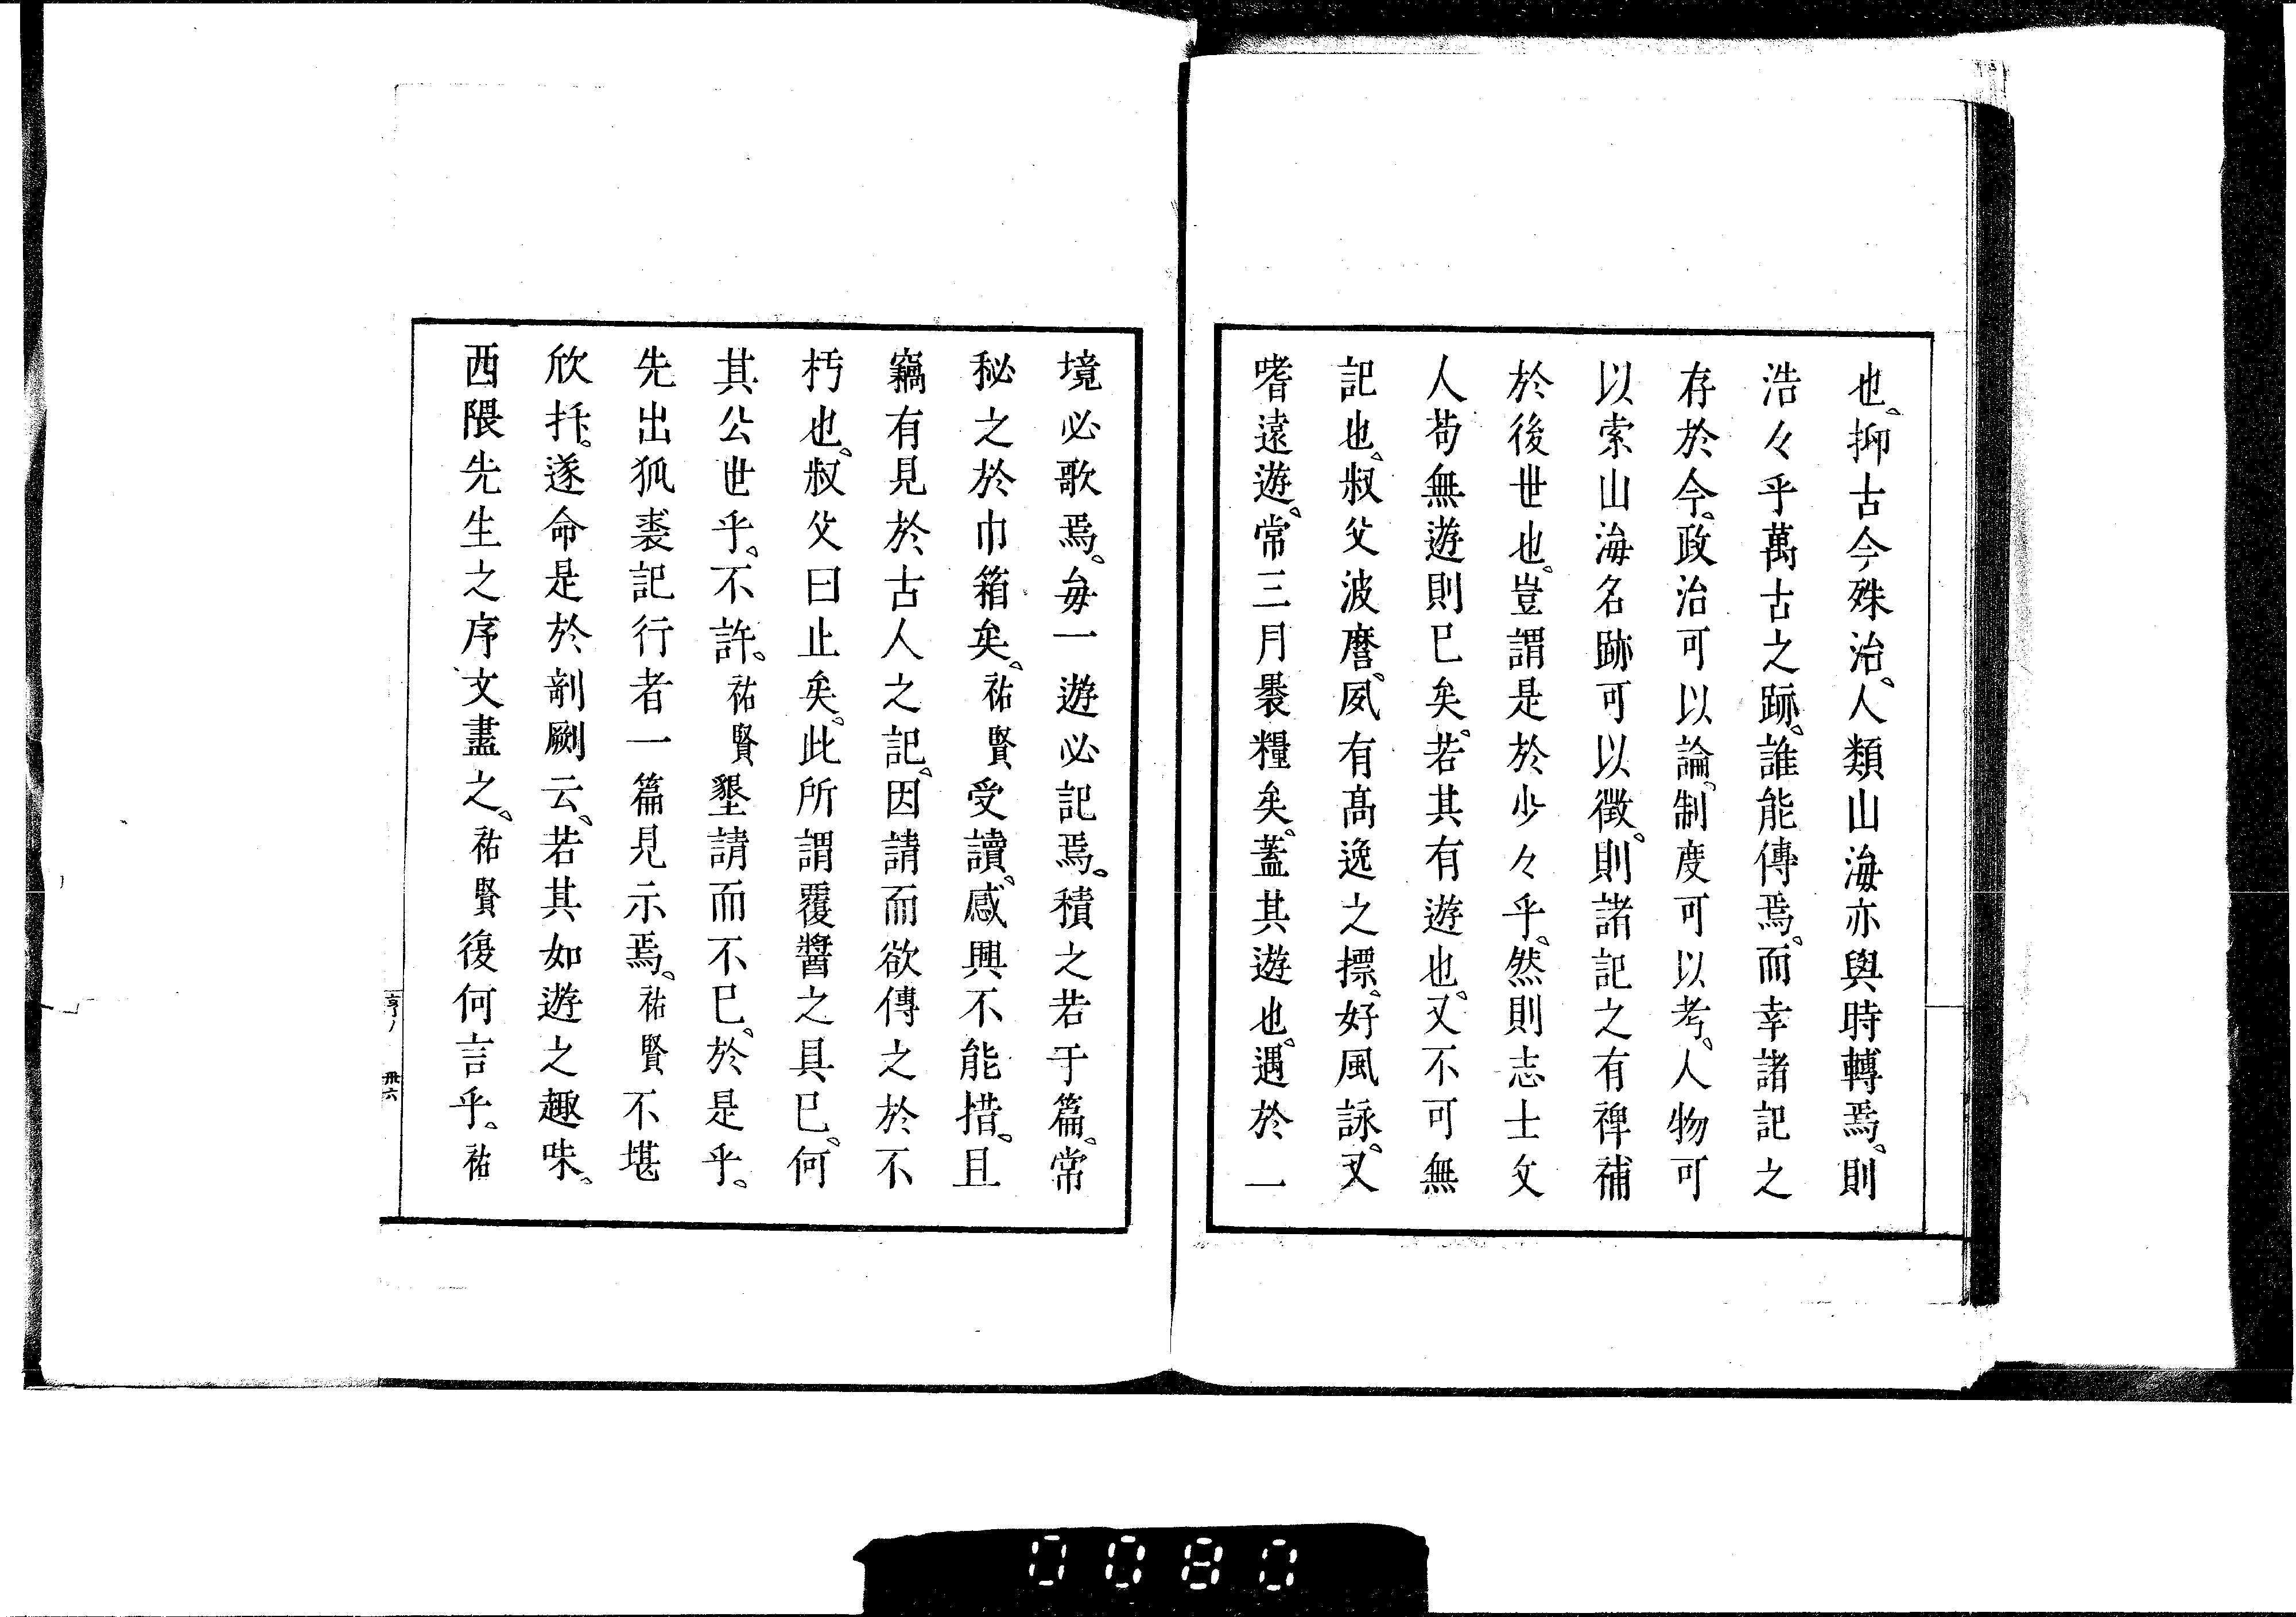 也。抑古今殊治。人類山海亦與時轉焉。則
浩々乎萬古之跡。誰能傳焉。而幸諸記之
存於今。政治可以論。制度可以考。人物可
以索山海名跡可以徴。則諸記之有裨補
於後世也。豈謂是於少々乎。然則志士文
人苟無遊則已矣。若其有遊也。又不可無
記也。叔父波麿。夙有髙逸之摽。好風詠。又
嗜遠遊。常三月褁糧矣。蓋其遊也。遇於一
境必歌焉。毎一遊必記焉。積之若于篇。常
秘之於巾箱矣。祐賢受讀。感興不能措。且
竊有見於古人之記。因請而欲傳之於不
朽也。叔父曰止矣。此所謂覆醬之具已。何
其公世乎。不許。祐賢墾請而不已。於是乎。
先出狐裘記行者一篇見示焉。祐賢不堪
欣抃。遂命是於剞劂云。若其如遊之趣味。
西隈先生之序文盡之。祐賢復何言乎。祐
亨ノ 卅六
0080